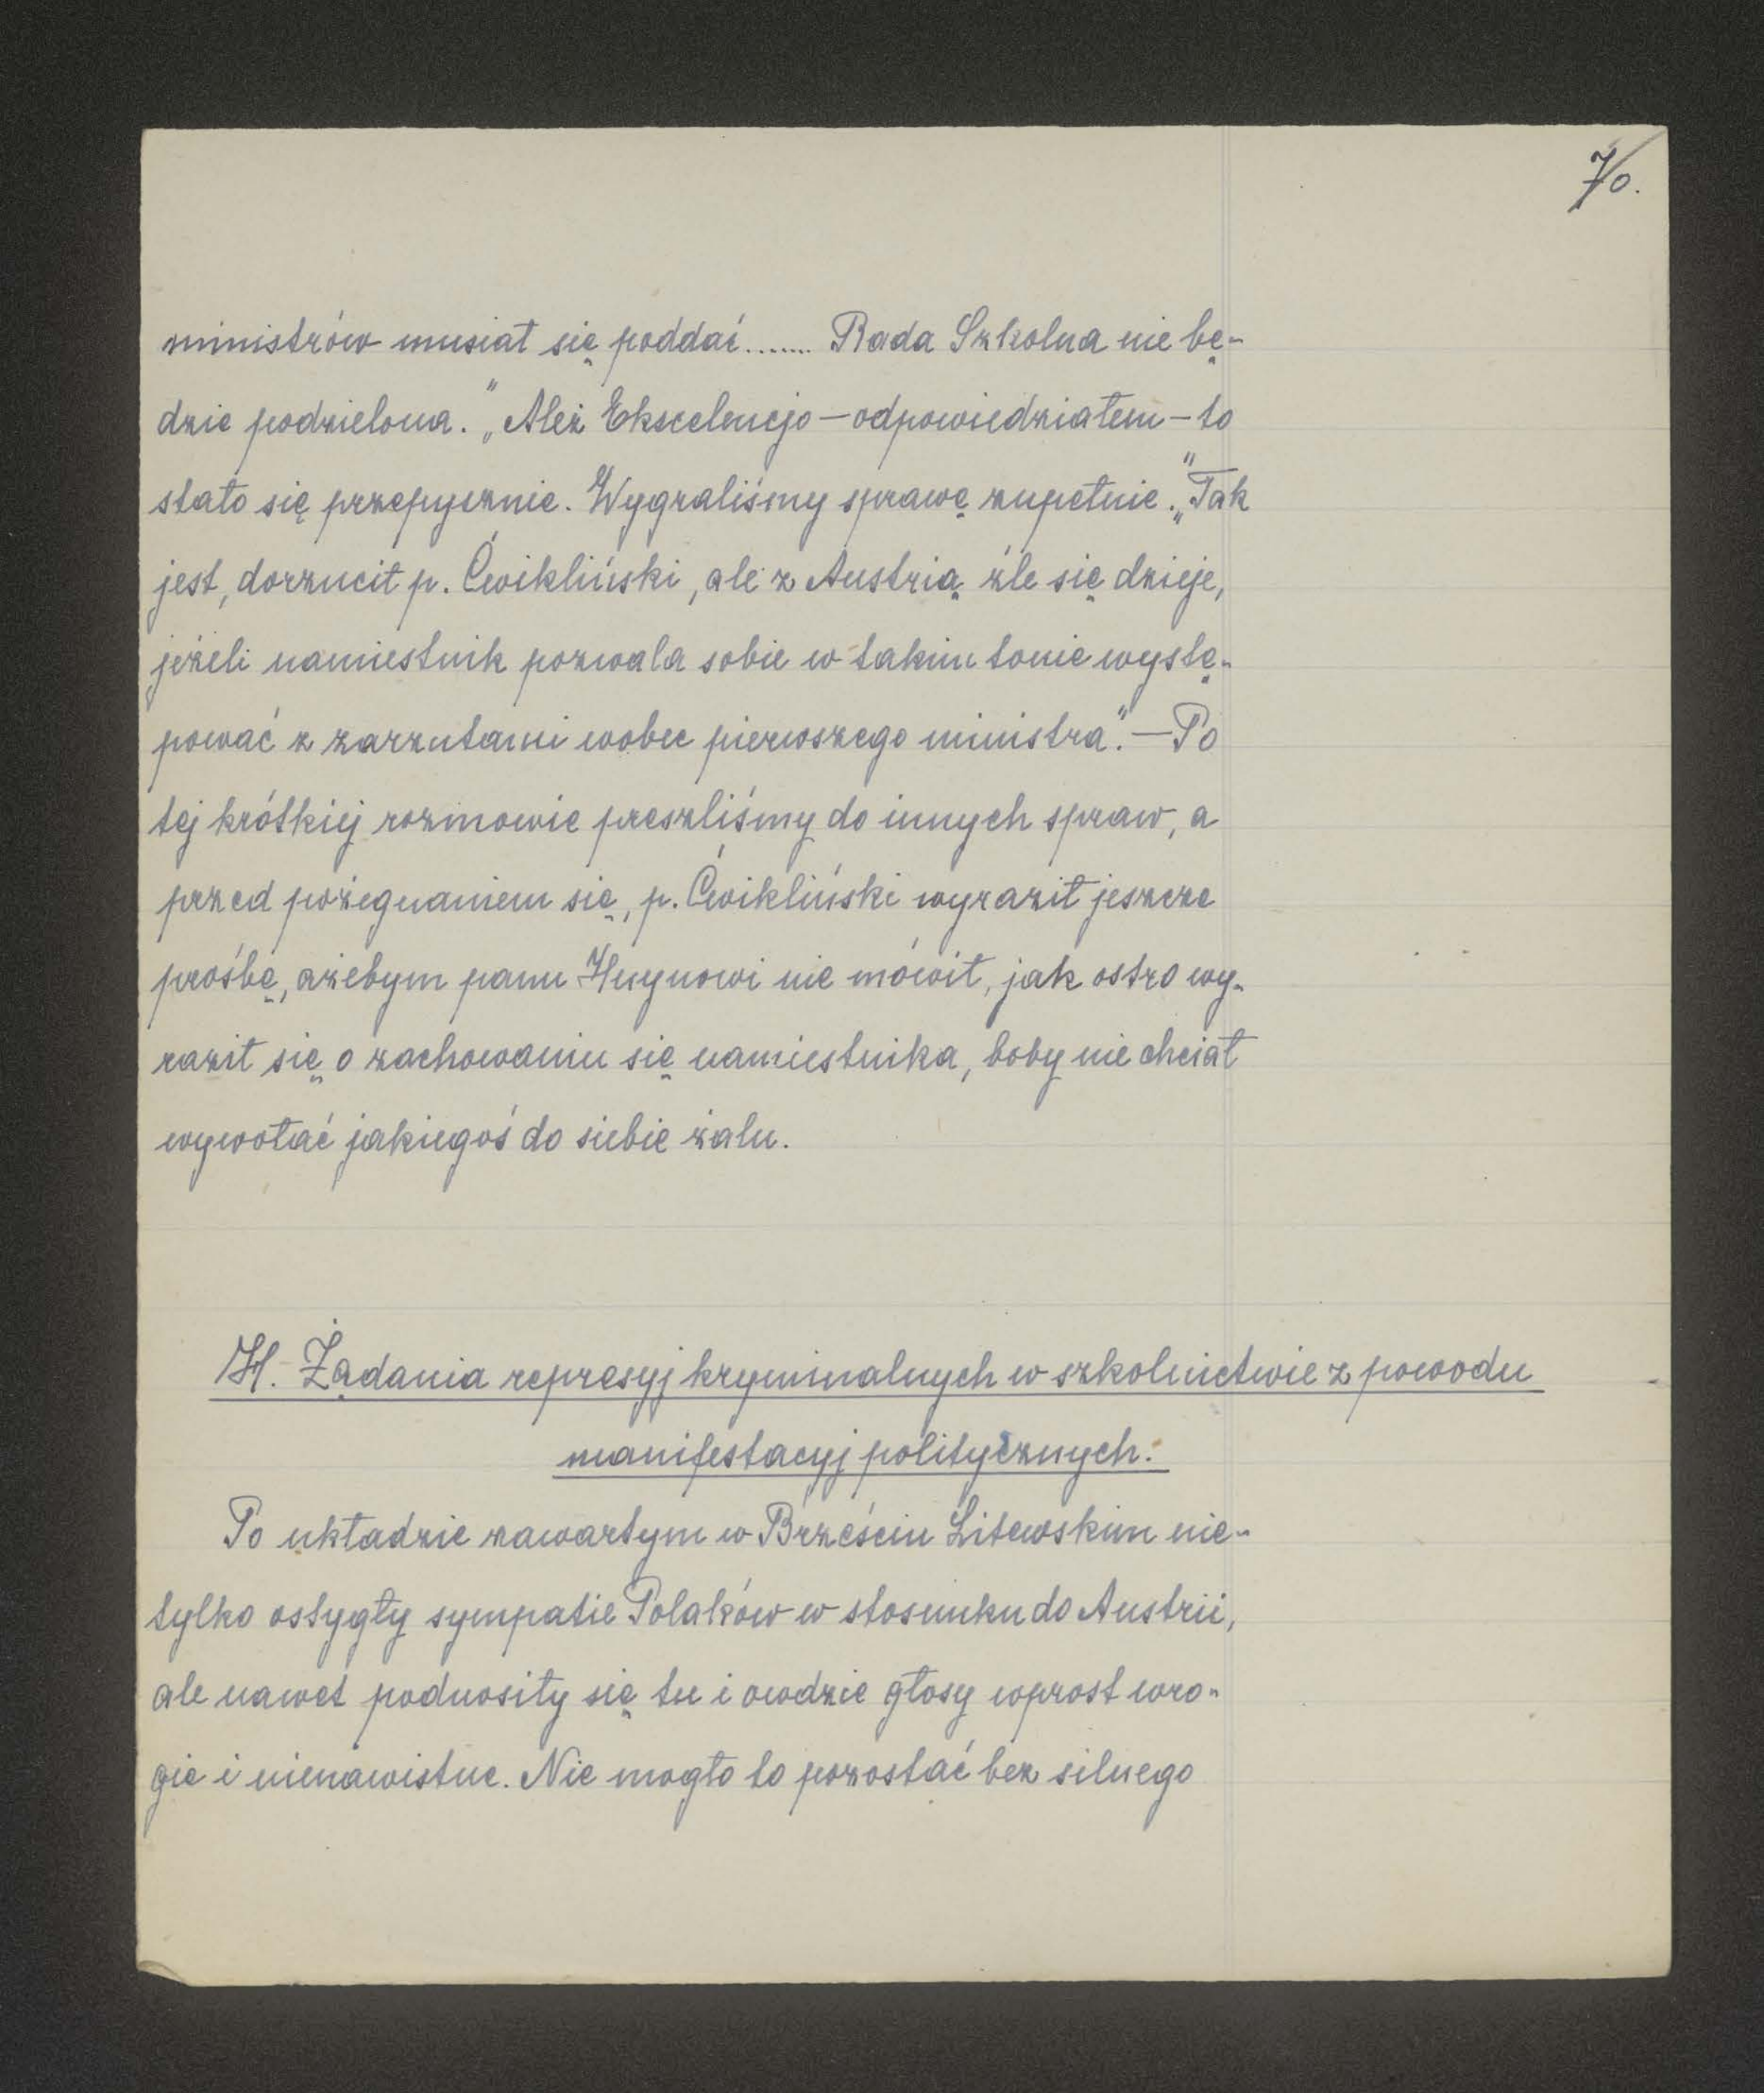 70.
ministrów musiał się poddać....... Rada Szkolna nie bę-
dzie podzielona." „Ależ Ekscelencjo — odpowiedziałem — to
stało się przepysznie. Wygraliśmy sprawę zupełnie." „Tak
jest, dorzucił p. Ćwikliński, ale z Austrią źle się dzieje,
jeżeli namiestnik pozwala sobie w takim tonie wystę-
pować z zarzutami wobec pierwszego ministra". — Po
tej krótkiej rozmowie preszliśmy do innych spraw, a
przed pożegnaniem się, p. Ćwikliński wyraził jeszcze
prośbę, ażebym panu Huynowi nie mówił, jak ostro wy-
raził się o zachowaniu się namiestnika, boby nie chciał
wywołać jakiegoś do siebie żalu.
H. Żądania represyj kryminalnych w szkolnictwie z powodu
manifestacyj politycznych.
Po układzie zawartym w Brześciu Litewskim nie-
tylko ostygły sympatie Polaków w stosunku do Austrii,
ale nawet podnosiły się tu i owdzie głosy wprost wro-
gie i nienawistne. Nie mogło to pozostać bez silnego